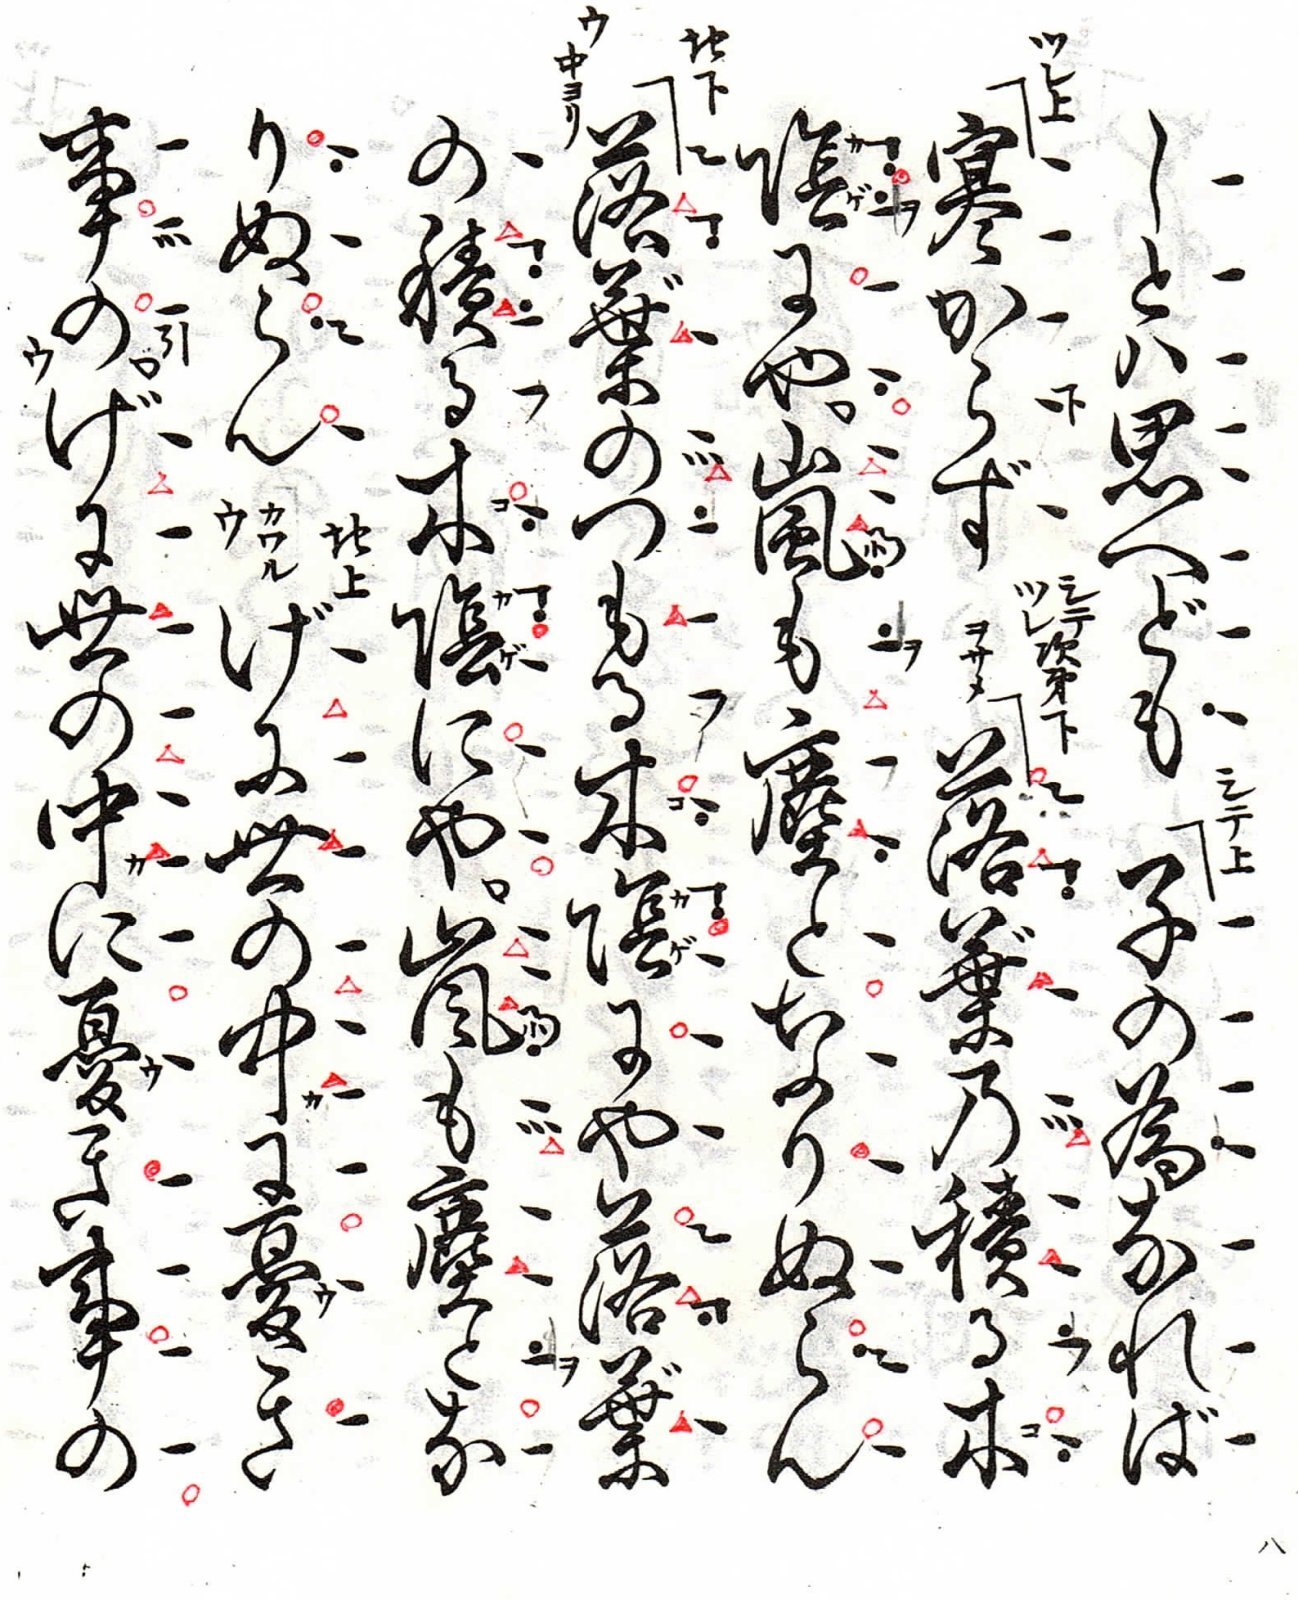 しとハ思へども シテ上 子の為なれば
ツレ上 寒からず シテ ツレ 次第下 ヲサメ 落葉乃積る木
陰にや。嵐も塵となりぬらん
地下 ウ 中ヨリ 落葉のつもる木陰にや落葉
の積る木陰にや。嵐も塵とな
りぬらん 地上 カワル ウ げに世の中に憂き
事のげに世の中に憂き事の
八